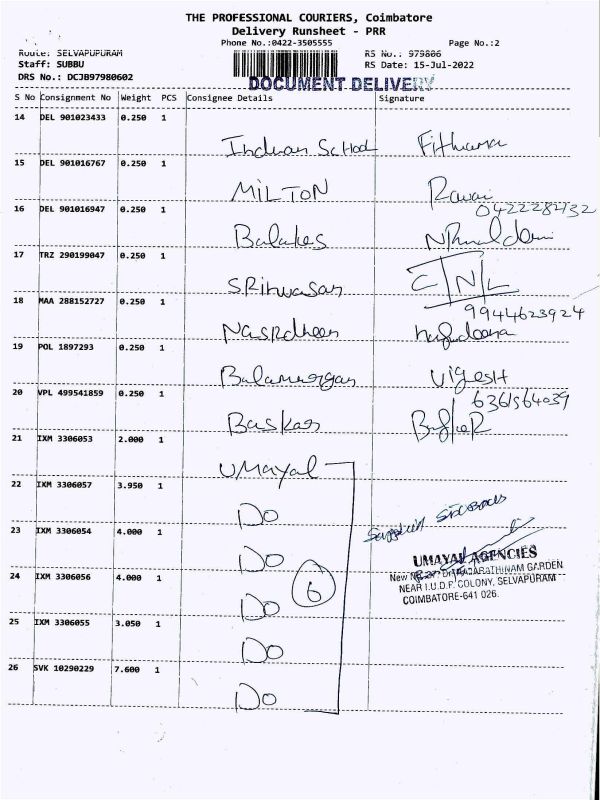 THE PROFESSIONAL COURIERS, Coimbatore
Delivery Runsheet - PRR
Phone No.:0422-3505555 Page No.:2
Route: SELVAPUPURAM RS No.: 979806
Staff: SUBBU RS Date: 15-Jul-2022
DRS No.: DCJB97980602
DOCUMENT DELIVERY
S No Consignment No Weight PCS Consignee Details Signature
14 DEL 901023433 0.250 1
Indian School
15 DEL 901016767 0.250 1
MILTON
16 DEL 901016947 0.250 1 04222282132
17 TRZ 290199047 0.250 1
SRinwasan C/N/L
18 MAA 288152727 0.250 1 9944623924
Nasrdheen
19 POL 1897293 0.250 1
Balamurgan VigesH
20 VPL 499541859 0.250 1 6361564039
Baskar
21 IXM 3306053 2.000 1
UMayal
22 IXM 3306057 3.950 1
DO
23 IXM 3306054 4.000 1
DO
UMAYAL AGENCIES
24 IXM 3306056 4.000 1 6
NEAR I.U.D.F. COLONY, SELVAPURAM
COIMBATORE-641 026.
DO
25 IXM 3306055 3.050 1
DO
26 SVK 10290229 7.600 1
DO